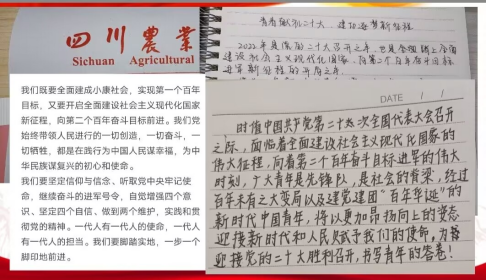 四川農業
Sichuan Agricultural
我们既要全面建成小康社会，实现第一个百年
目标，又要开启全面建设社会主义现代化国家
新征程，向第二个百年奋斗目标前进。我们党
始终带领人民进行的一切创造，一切奋斗，一
切牺牲，都是在践行为中国人民谋幸福，为中
华民族谋复兴的初心和使命。
我们要坚定信仰与信念、听取党中央牢记使
命，继续奋斗的进军号令，自觉增强四个意
识、坚定四个自信、做到两个维护，实践和贯
彻党的精神。一代人有一代人的使命，一代人
有一代人的担当。我们要脚踏实地，一步一个
脚印地前进。
青春献礼二十大，建功逐梦新征程
2022年是党的二十大召开之年，也是全国踏上全面
建设社会主义现代化国家、向第二个百年奋斗目标
进军新征程的开局之年。
DATE / /
时值中国共产党第二十次全国代表大会召开
之际，面临着全面建设社会主义现代化国家的
伟大征程，向着第二个百年奋斗目标进军的伟大
时刻，广大青年是先锋队，是社会的脊梁，经过
百年未有之大变局以及建党建团"百年华诞"的
新时代中国青年，将以更加昂扬向上的姿态
迎接新时代和人民赋予我们的使命，为
迎接党的二十大胜利召开，书写青年的答卷！